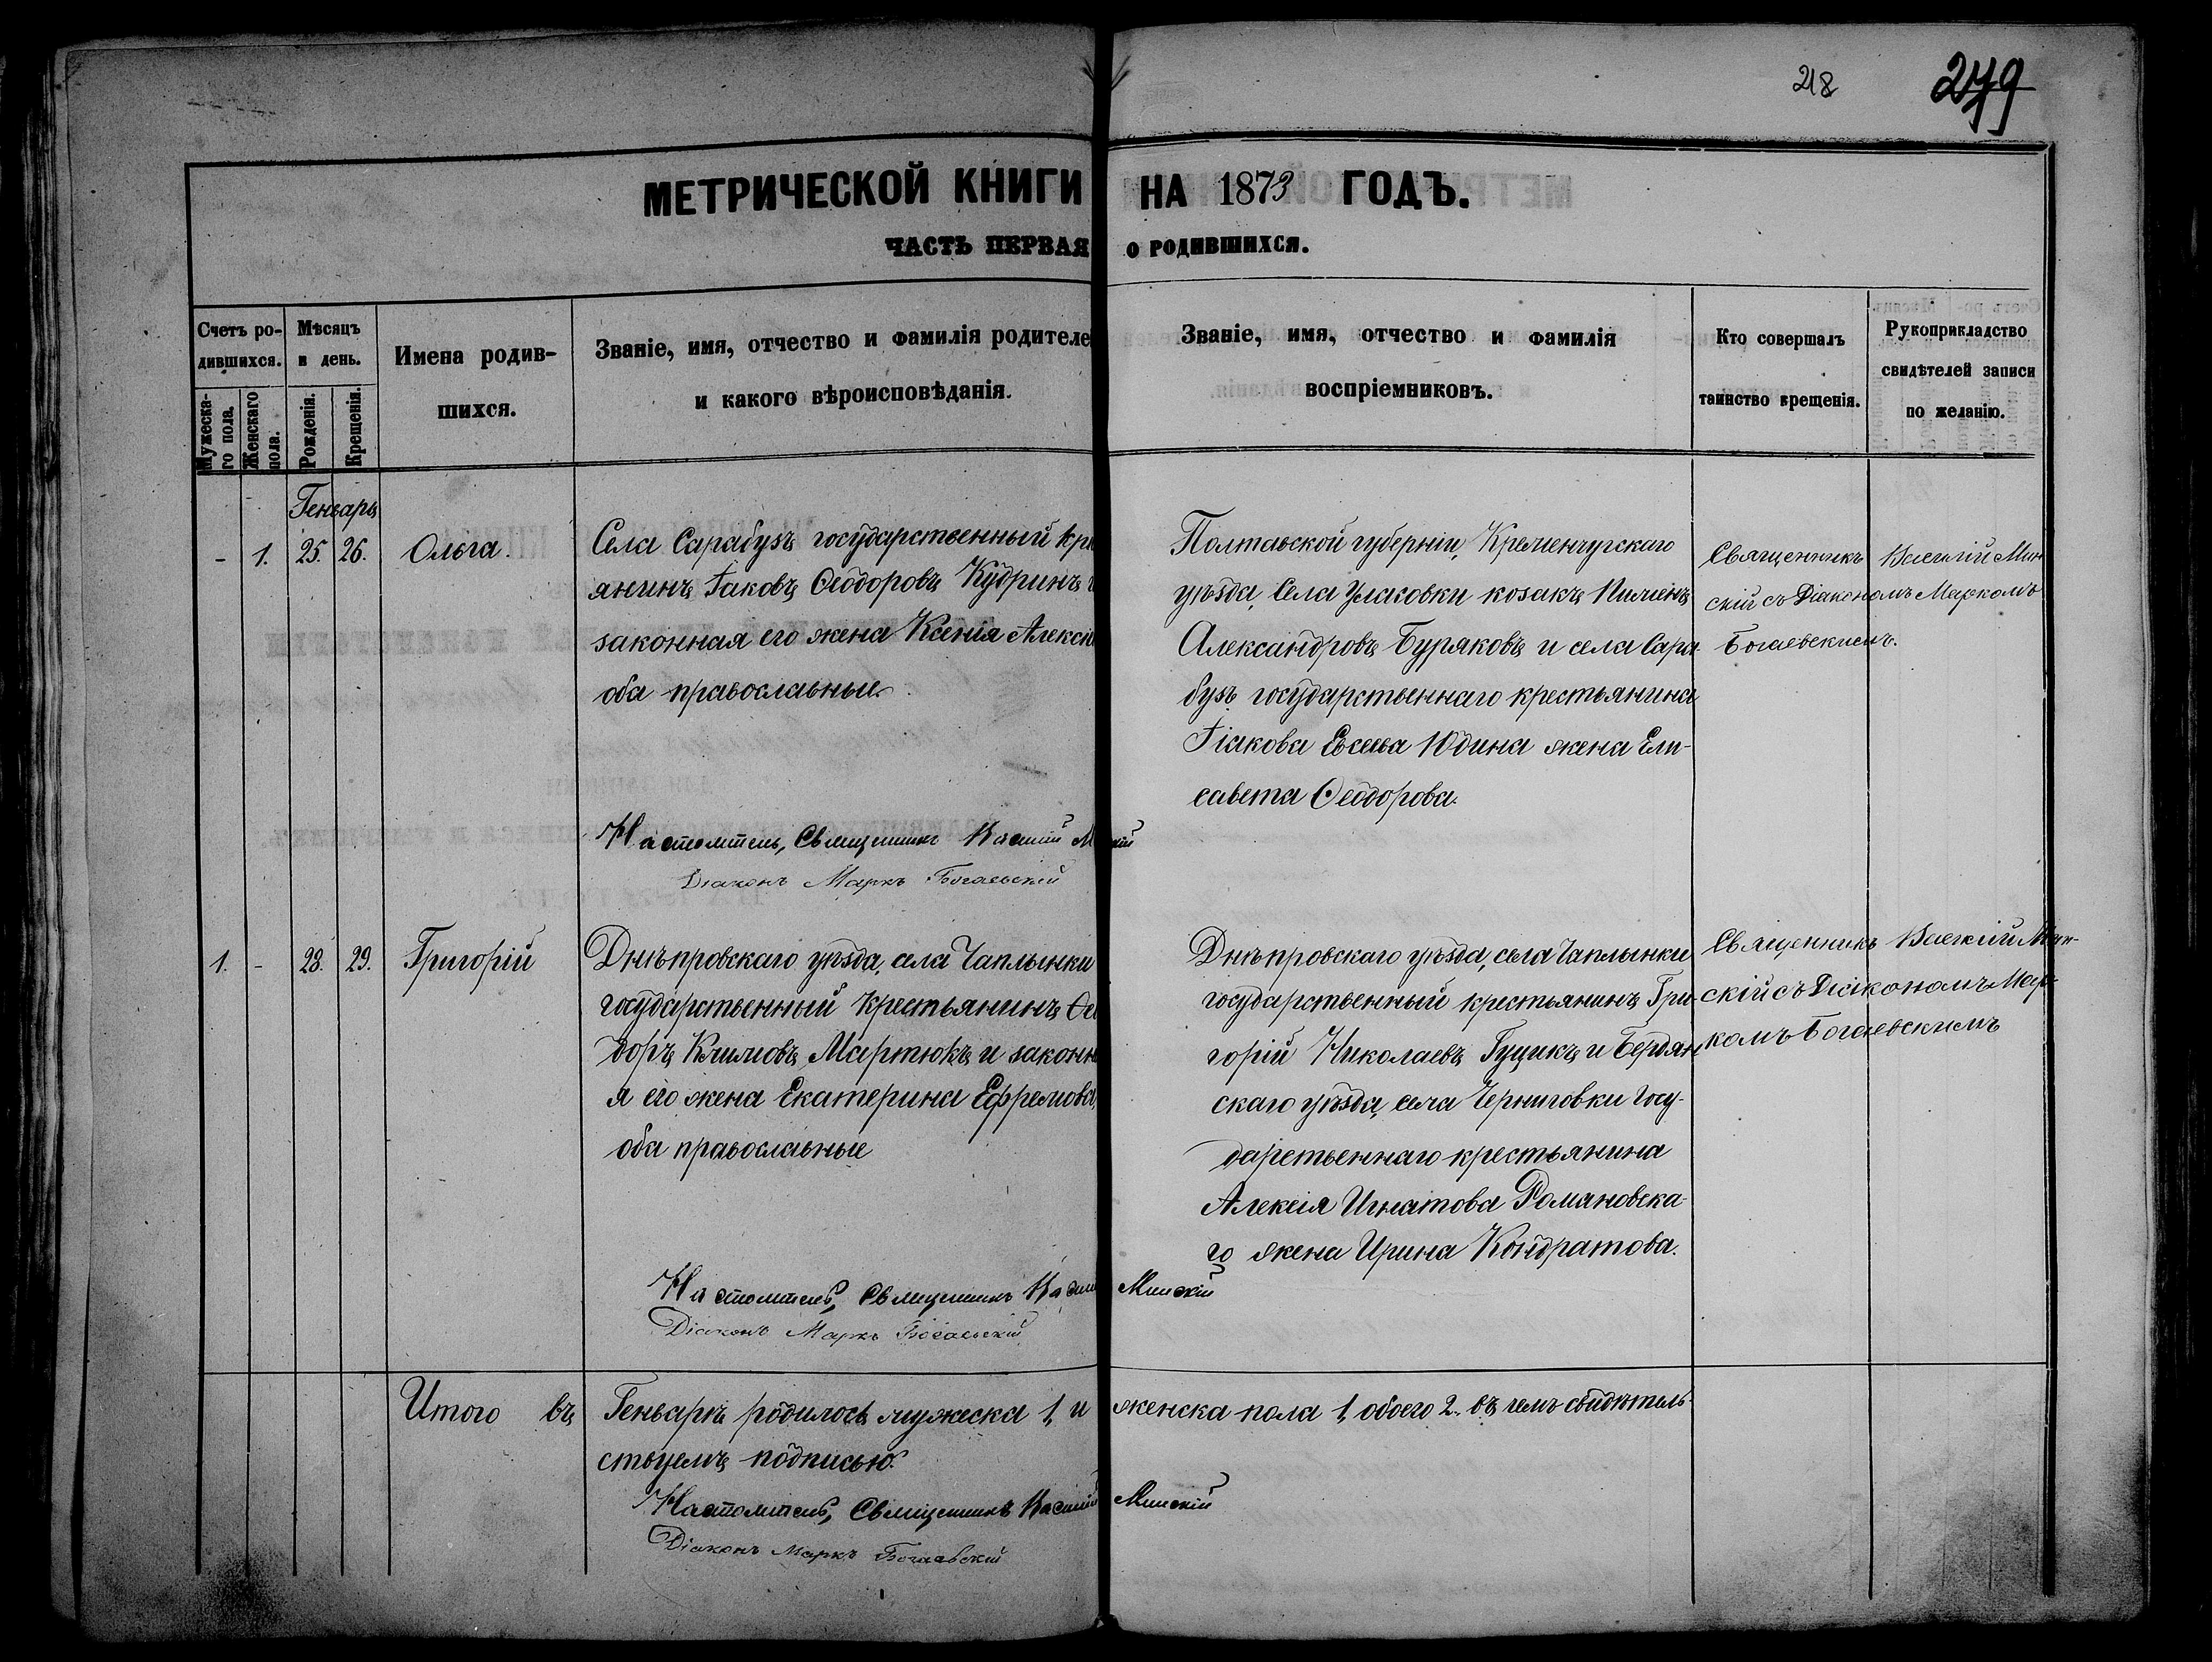 218 279
МЕТРИЧЕСКОЙ КНИГИ НА 1873 ГОДЪ.
ЧАСТЬ ПЕРВАЯ О РОДИВШИХСЯ.
Счетъ ро-
дившихся.
Мужеска-
го пола.
Женскаго
пола.
Мѣсяцъ
и день.
Рожденія.
Крещенія.
Имена родив-
шихся.
Званіе, имя, отчество и фамилія родителе
и какого вѣроисповѣданія.
Званіе, имя, отчество и фамилія
воспріемниковъ.
Кто совершалъ
таинство крещенія.
Рукоприкладство
свидѣтелей записи
по желанію.
Генварь
- 1. 25. 26. Ольга.
Села Сарабузъ государственный кр
янинъ Іаковъ Ѳеодоровъ Кудринъ и
законная его жена Ксенія Алексі
оба православные.
Настоятель, Священникъ Василій М кій
Діаконъ Маркъ Богаевскій
Полтавской губерніи, Кременчугскаго
уѣзда, Села козакъ Пименъ
Александровъ Буряковъ и села Сара
бузъ государственнаго крестьянина
Іакова Евсеева Юдина жена Ели-
савета Ѳеодорова.
Священникъ Василій Мин
скій съ Діакономъ Маркомъ
Богаевскимъ.
1. - 28. 29. Григорій
Днѣпровскаго уѣзда, села Чаплынки
государственный крестьянинъ Ѳео
доръ Климовъ Мартюкъ и законн
я его жена Екатерина Ефремова,
оба православные
Настоятель, Священникъ Васил Минскій
Діаконъ Маркъ Богаевскій
Днѣпровскаго уѣзда, села Чаплынки
государственный крестьянинъ Гри-
горій Николаевъ Гуцикъ и Бердян
скаго уѣзда, села Черниговки Госу-
дарственнаго крестьянина
Алексія Игнатова Романовска-
го жена Ирина Кондратова.
Священникъ Василій Мин-
скій съ Діакономъ Мар-
комъ Богаевскимъ
Итого въ Генварѣ родилось мужеска 1, и женска пола 1, обоего 2. въ чемъ свидѣтель-
ствуемъ подписью.
Настоятель, Священникъ Василій Минскій
Діаконъ Маркъ Богаевскій